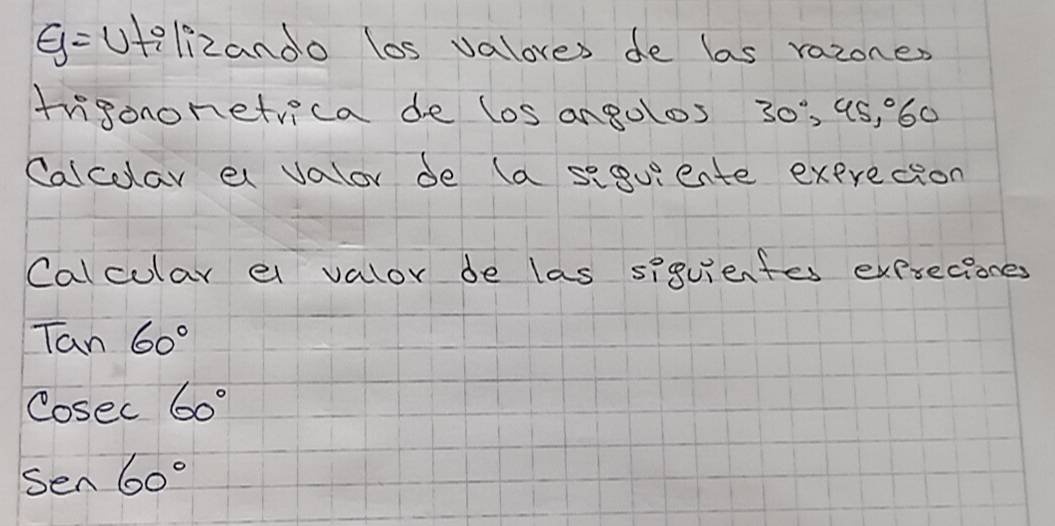 Ej= Utilizando los valores de las razones
trigonometrica de los angulos 30°, 45,°60
Calcular el valor de la siguiente exprecion
Calcular el valor de las siguientes expreciones
Tan 60°
Cosec 60°
Sen 60°